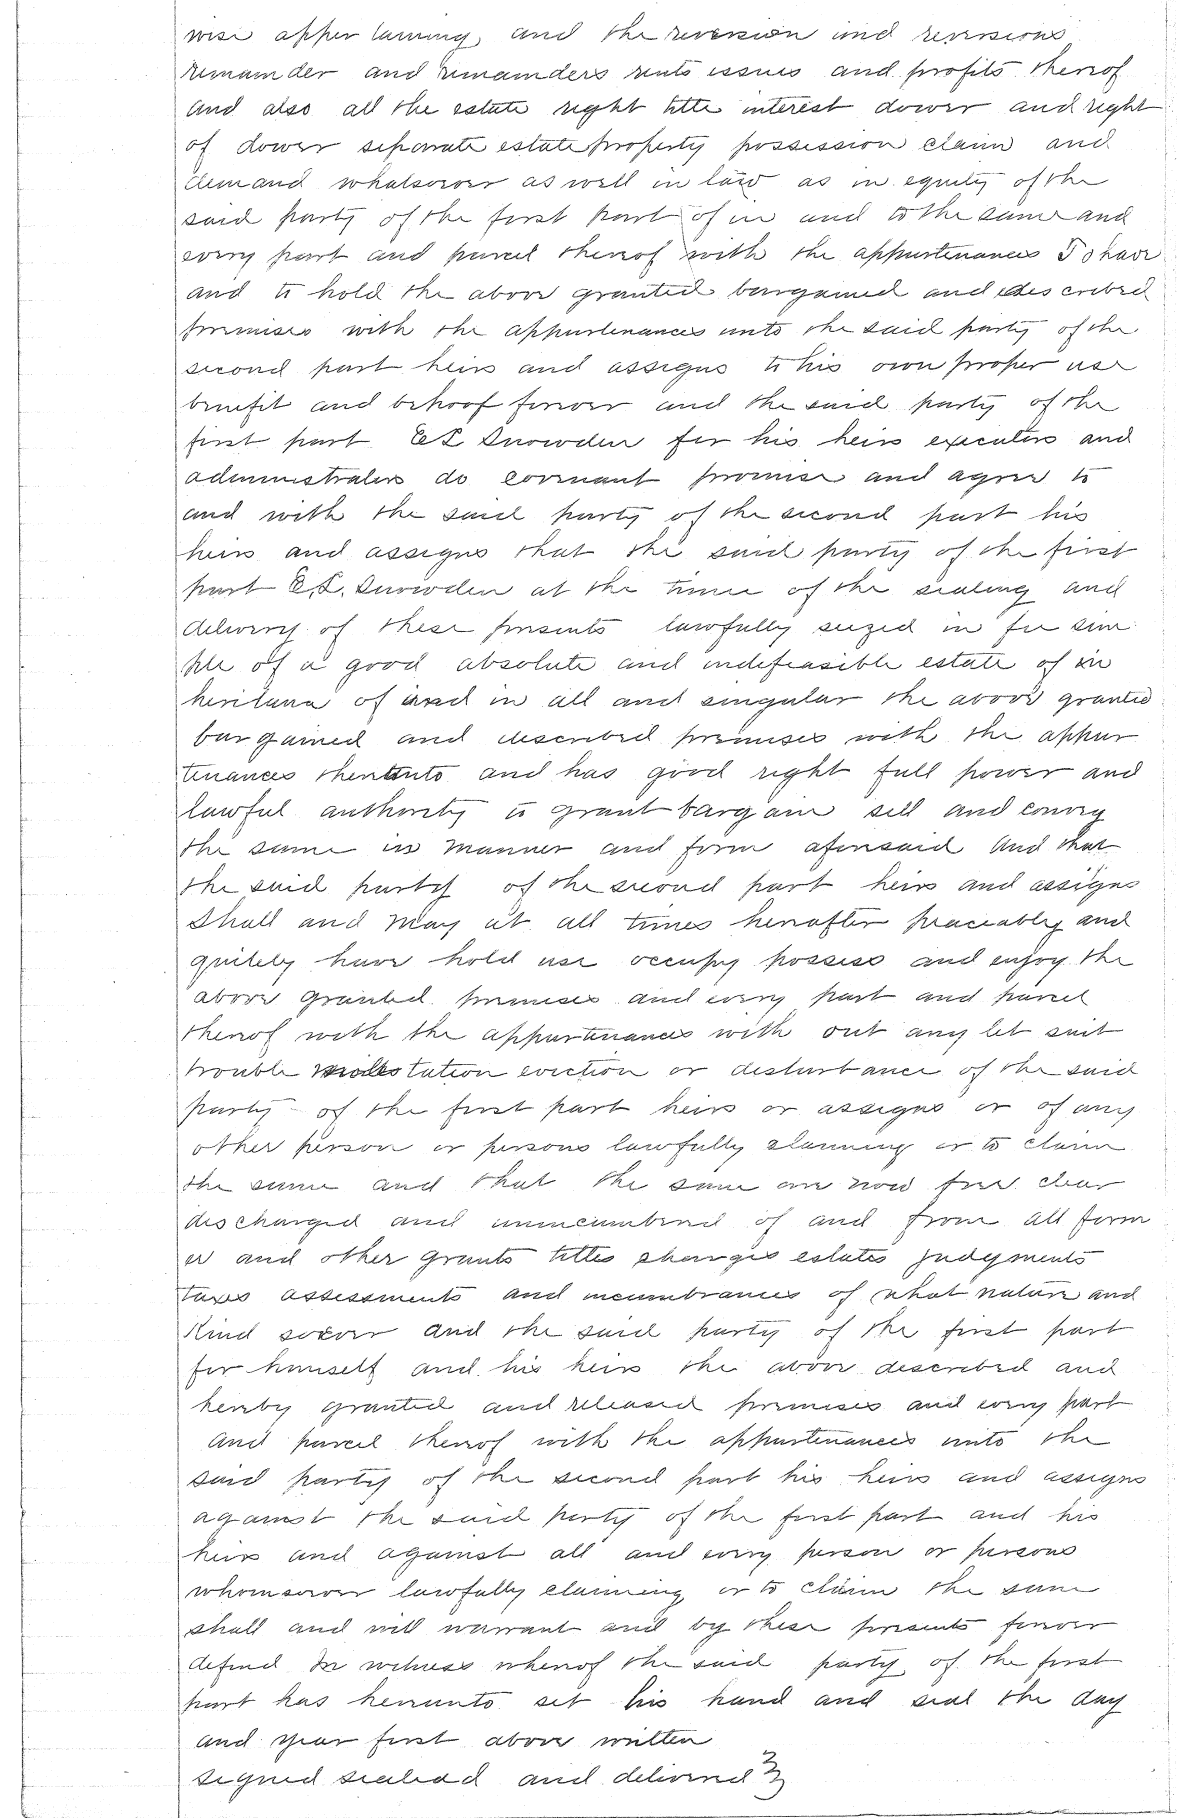 wise apper taining, and the reversion and reversions
remain der and remainders rents issues and profits thereof
And also all the estate right title interest dower and right
of dower separate estate property possession claim and
demand whatsoever as well in law as in equity of the
said party of the first part of in and to the same and
every part and parcel thereof with the appurtenances To have
and to hold the above granted bargained and described
premises with the appurtenances unto the said party of the
second part heirs and assigns to his own proper use
benefit and behoof forever and the said party of the
first part E L Snowden for his heirs executors and
administrators do covenant promise and agree to
and with the said party of the second part his
heirs and assigns that the said party of the first
part E. L. Snowden at the time of the sealing and
delivery of these presents lawfully seized in fee sim
ple of a good absolute and indefeasible estate of in
heritance of and in all and singular the above granted
bar gained and described premises with the appur
tenances thereunto and has good right full power and
lawful authority to grant bargain sell and convey
the same in manner and form aforesaid And that
the said party of the second part heirs and assigns
Shall and May at all times hereafter peaceably and
quitely have hold use occupy possess and enjoy the
above granted premises and every part and parcel
thereof with the appurtenances with out any let suit
trouble molestation eviction or disturbance of the said
party of the first part heirs or assigns or of any
other person or persons lawfully claiming or to claim
the same and that the same are now free clear
discharged and unincumbered of and from all form
er and other grants titles charges estates judgments
taxes assessments and incumbrances of what nature and
Kind soever And the said party of the first part
for himself and his heirs the above described and
hereby granted and released premises and every part
And parcel thereof with the appurtenances unto the
said party of the second part his heirs and assigns
against the said party of the first part and his
heirs and against all and every person or persons
whomsoever lawfully claiming or to claim the same
shall and will warrant and by these presents forever
defend In witness whereof the said party of the first
part has hereunto set his hand and seal the day
and year first above written
signed sealead and delivered